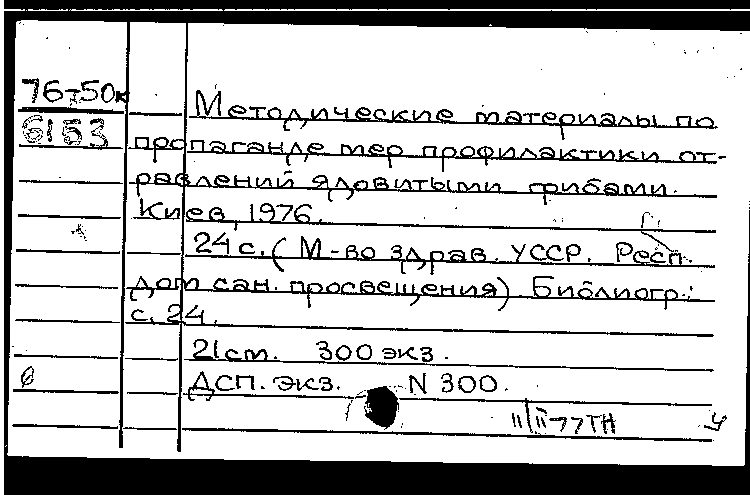 76-50к
6153
Методические материалы по
пропаганде мер профилактики от-
равлений ядовитыми грибами.
Киев, 1976.
24 с. (М-во здрав. УССР. Респ.
дом сан. просвещения) Библиогр.:
с. 24.
21 см. 300 экз.
ДСП. экз. N 300.
11/II-77 ТН